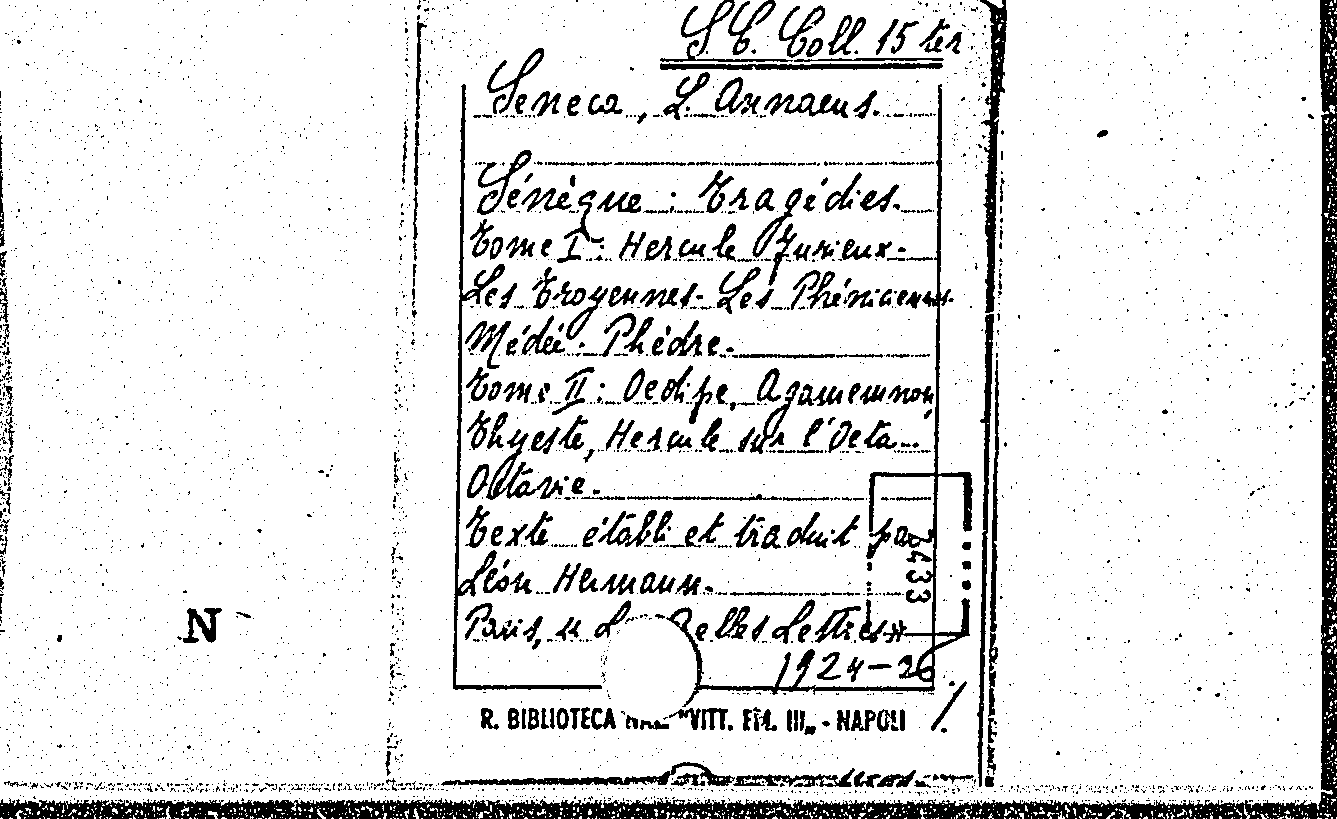 S. C. Coll. 15 ter
Seneca, L. Annaeus.
Sénèque : Tragédies.
Tome I : Hercule Furieux -
Les Troyennes - Les Phéniciennes.
Médée - Phèdre.
Tome II : Oedipe, Agamemnon,
Thyeste, Hercule sur l'Oeta -
Octavie.
Texte établi et traduit par
Léon Hermann.
Paris, « Belles Lettres »
1924-26.
2433
N
R. BIBLIOTECA NAZ. "VITT. EM. III„ - NAPOLI